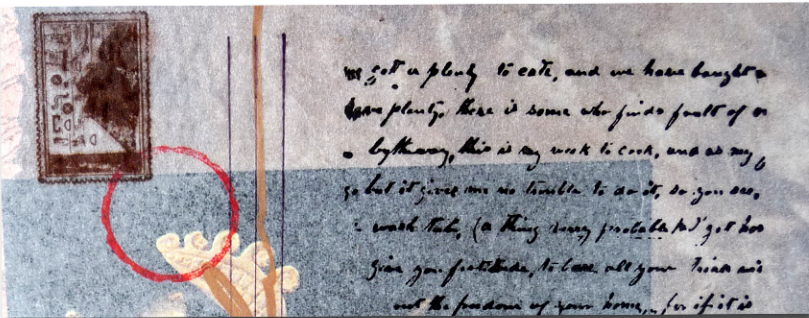 got a plenty to eate, and we have bought a
plenty. there is some who finds fault of
by the way, this is my week to cook, and as my
go but it gives me no trouble to do it, so you see,
wash tub, (a thing very probable to get
give you fortitude, to bear all your
out the freedom of your home, for if it is